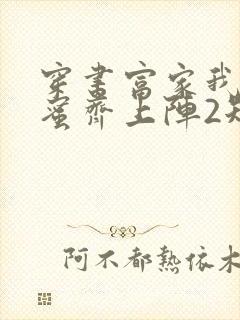 穿書富家我
蜜齊上陣2
阿不都熱依木